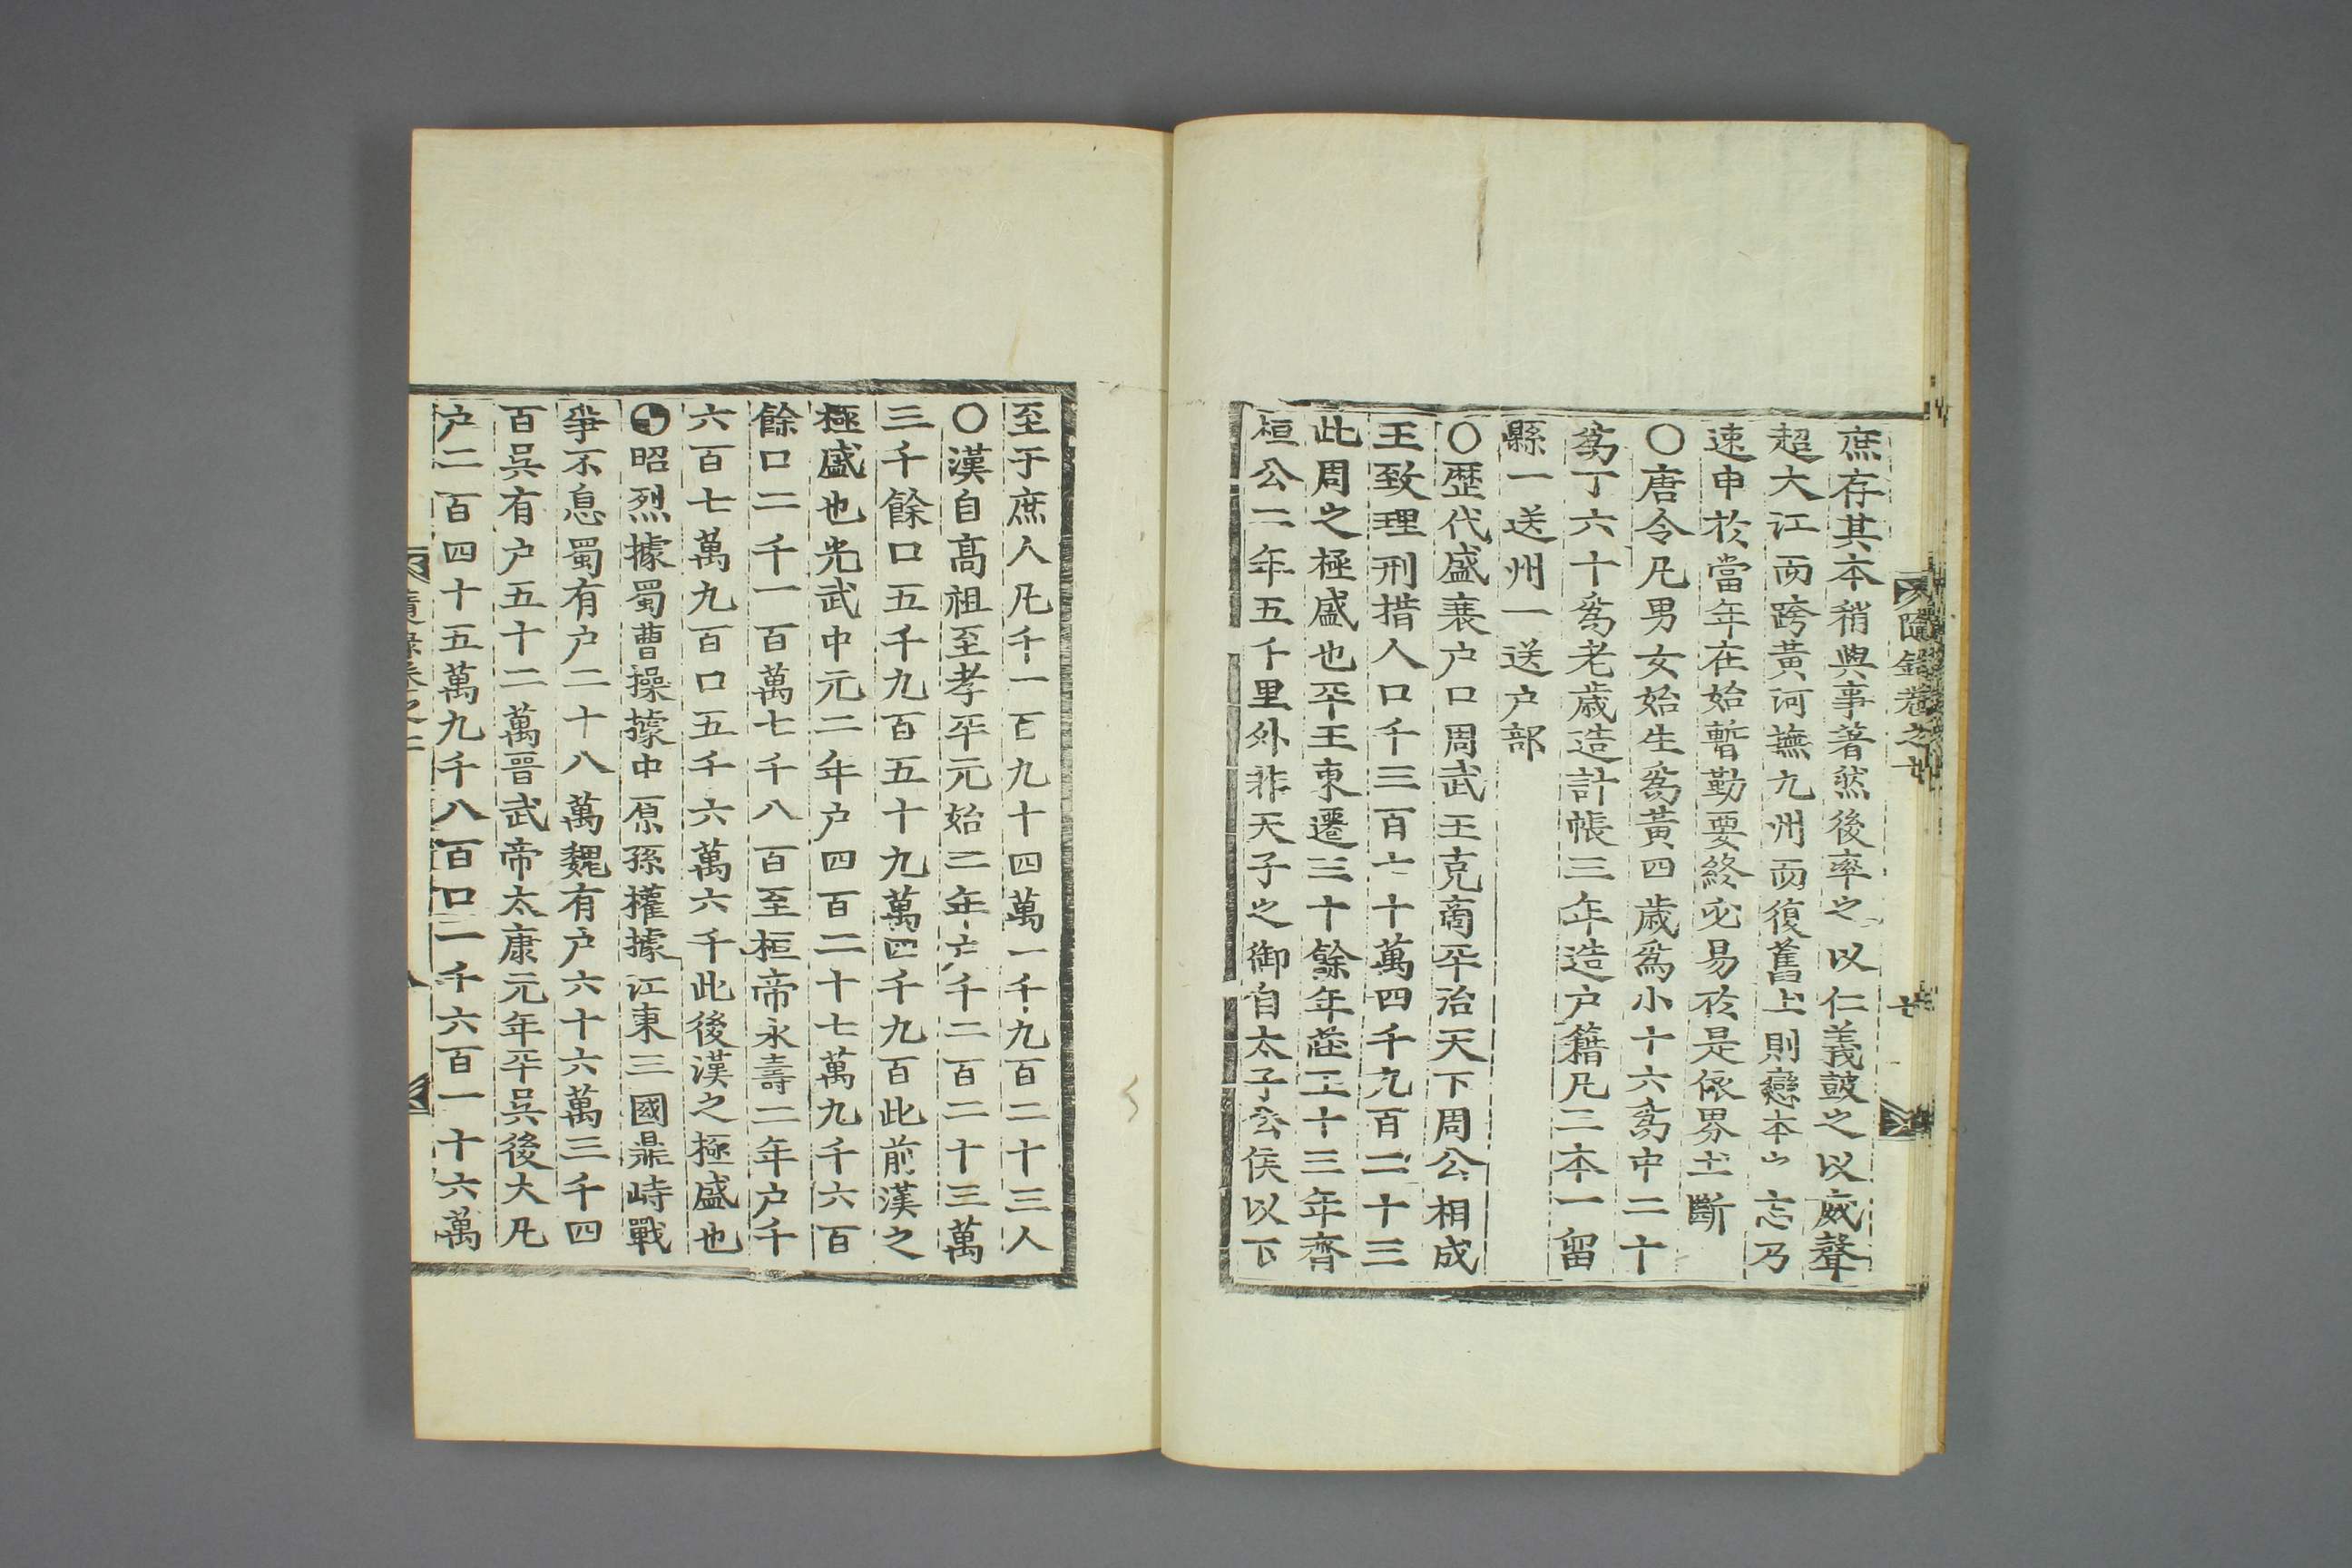 庶存其本稍與事著然後率之以仁義鼓之以威聲
超大江而跨黃河撫九州而復舊土則戀本忘乃
速申於當年在始暫勤要終必易於是依界土斷
〇唐令凡男女始生爲黃四歲爲小十六爲中二十
爲丁六十爲老歲造計帳三年造户籍凡三本一留
縣一送州一送户部
〇歷代盛衰户口周武王克商平治天下周公相成
王致理刑措人口千三百七十萬四千九百二十三
此周之極盛也平王東遷三十餘年莊王十三年齊
桓公二年五千里外非天子之御自太子公侯以下
至于庶人凡千一百九十四萬一千九百二十三人
〇漢自高祖至孝平元始二年户千二百二十三萬
三千餘口五千九百五十九萬四千九百此前漢之
極盛也光武中元二年户四百二十七萬九千六百
餘口二千一百萬七千八百至桓帝永壽二年户千
六百七萬九百口五千六萬六千此後漢之極盛也
昭烈據蜀曹操據中原孫權據江東三國鼎峙戰
爭不息蜀有户二十八萬魏有户六十六萬三千四
百吳有户五十二萬晉武帝太康元年平吳後大凡
户二百四十五萬九千八百口一千六百一十六萬